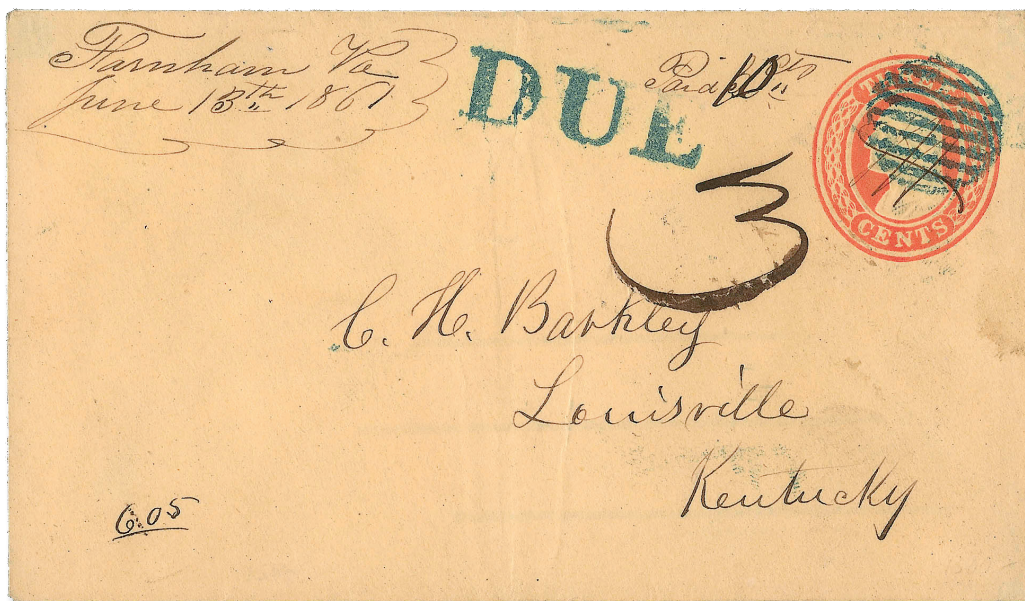 Farnham Va
June 13th 1861
Paid 10 cts
DUE
THREE
CENTS
3
C. H. Barkley
Louisville
Kentucky
6.05